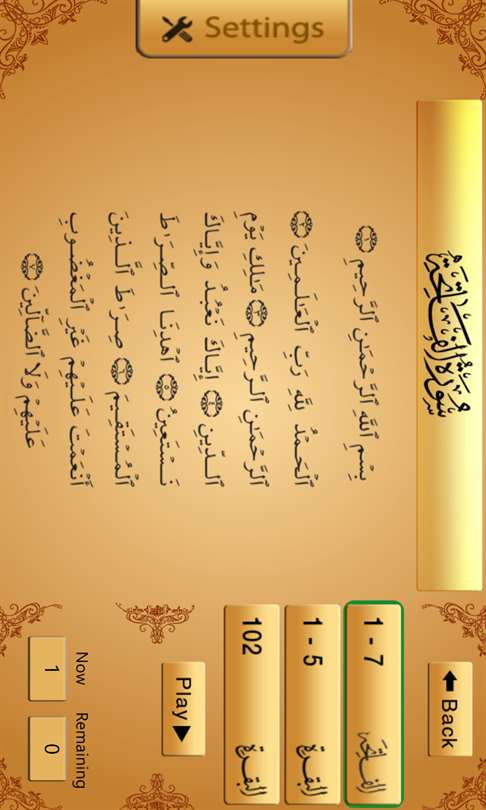 Settings
سُورَةُ الْفَاتِحَةِ
بِسْمِ ٱللَّهِ ٱلرَّحْمَـٰنِ ٱلرَّحِيمِ ﴿١﴾
ٱلْحَمْدُ لِلَّهِ رَبِّ ٱلْعَـٰلَمِينَ ﴿٢﴾
ٱلرَّحْمَـٰنِ ٱلرَّحِيمِ ﴿٣﴾ مَـٰلِكِ يَوْمِ
ٱلدِّينِ ﴿٤﴾ إِيَّاكَ نَعْبُدُ وَإِيَّاكَ
نَسْتَعِينُ ﴿٥﴾ ٱهْدِنَا ٱلصِّرَٰطَ
ٱلْمُسْتَقِيمَ ﴿٦﴾ صِرَٰطَ ٱلَّذِينَ
أَنْعَمْتَ عَلَيْهِمْ غَيْرِ ٱلْمَغْضُوبِ
عَلَيْهِمْ وَلَا ٱلضَّآلِّينَ ﴿٧﴾
Back
1 - 7 الفاتحة
1 - 5 البقرة
102 البقرة
Play
Now Remaining
1 0